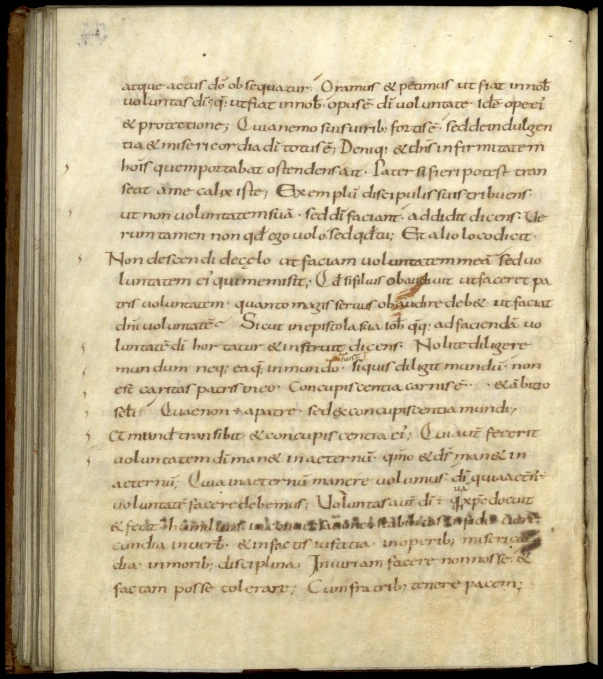 atque actus dō obsequatur. Oramus & petimus ut fiat in nob̄
voluntas dī; q; ut fiat in nob̄. opus ē dī voluntate. idē operē
& protectione; Quia nemo suis virib; fortis ē. sed dei indulgen
tia & misericordia dī totus ē; Deniq; & dn̄s infirmitatem
hoīs quem portabat ostendens ait. Pater si fieri potest tran
seat a me calix iste; Exemplū discipulis suis tribuens.
ut non voluntatem suā. sed dī faciant. addidit dicens. Ve
rum tamen non qđ ego volo sed qđ tu; Et alio loco dicit.
Non descendi de cęlo ut faciam voluntatem meā sed vo
luntatem ei' qui me misit; Qđ si filius obaudivit ut faceret pa
tris voluntatem. quanto magis servus obaudire deb& ut faciat
dn̄i voluntatē. Sicut in epistola sua ioh̄ q;q; ad faciendā vo
luntatē dī hortatur & instruit dicens. Nolite diligere
mundum neq; ea q; in mundo sunt. si quis diligit mundū. non
est caritas patris in eo. Concupiscentia carnis ē. & ābitio
sc̄li. Quae non ÷ a patre. sed ex concupiscentia mundi;
Et mund' transibit & concupiscentia ei'; Qui aut̄ fecerit
voluntatem dī man& in aeternū. qm̄o & ds̄ man& in
aeternū; Quia in aeternū manere volumus. dī qui aet̄n' ÷
voluntatē facere debemus; Voluntas aut̄ dī ÷ quā xp̄s docuit
& fecit. humilitas in conversatione. stabilitas in fide. vere
cundia in verb̄. & in factis iustitia. in operib; misericor
dia. in morib; disciplina. Iniuriam facere non nosse. &
factam posse tolerare; Cum fratrib; tenere pacem;